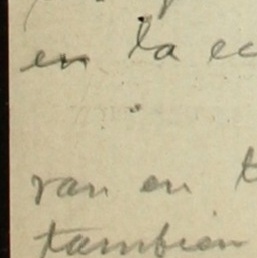 en la ec
ran en t
tambien